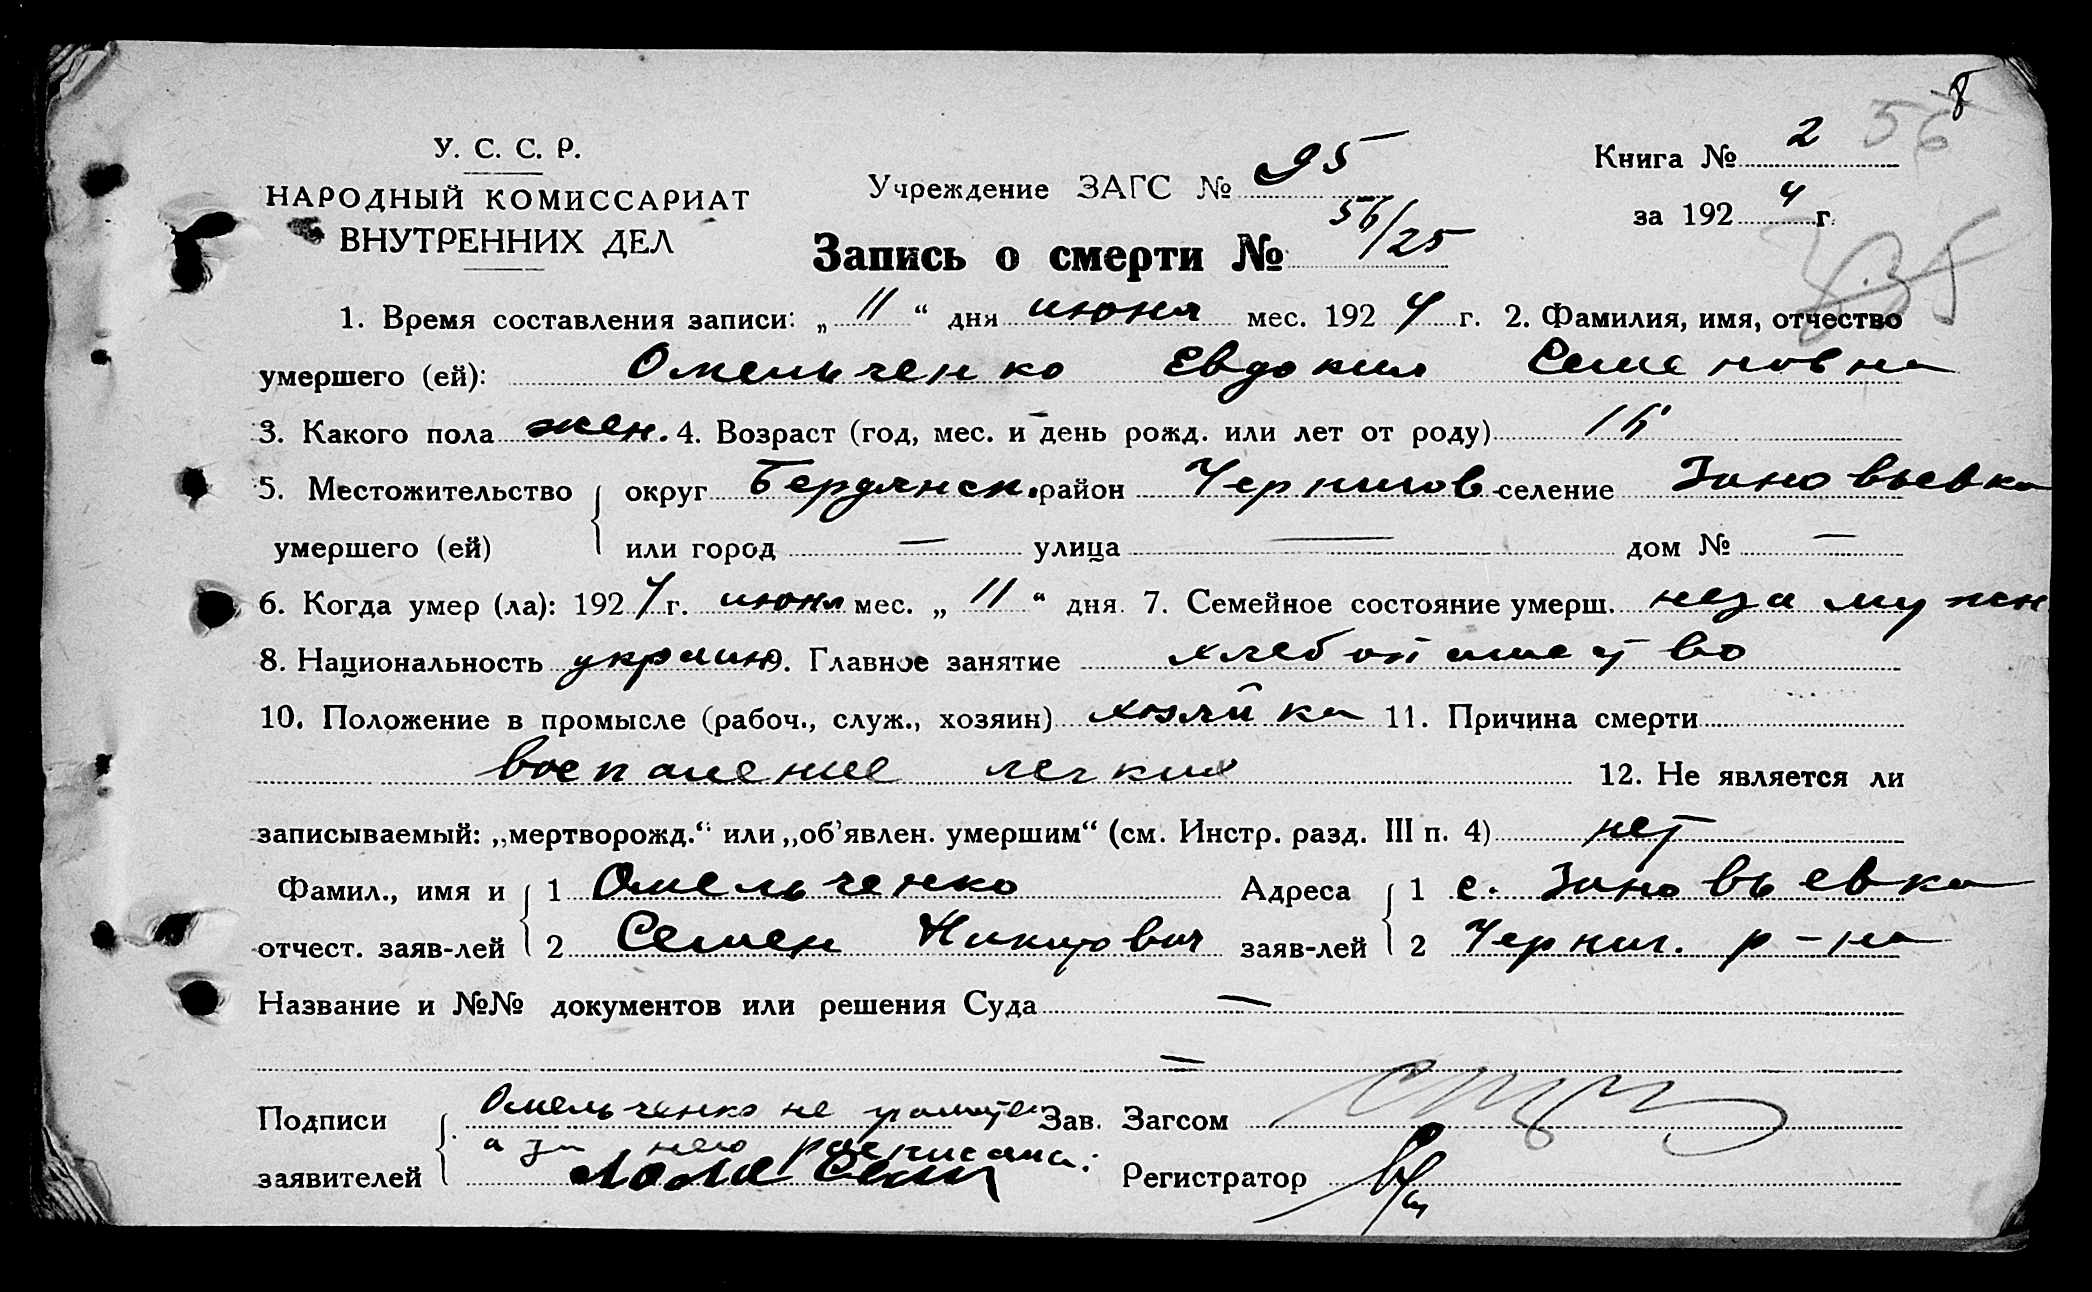 8
56
У. С. С. Р.
НАРОДНЫЙ КОМИССАРИАТ
ВНУТРЕННИХ ДЕЛ
Учреждение ЗАГС № 95
Запись о смерти № 56/25
Книга № 2
за 1924 г.
1. Время составления записи: „11“ дня июня мес. 1924 г. 2. Фамилия, имя, отчество
умершего (ей): Омельченко Евдокия Семеновна
3. Какого пола жен. 4. Возраст (год, мес. и день рожд. или лет от роду)
5. Местожительство округ Бердянск. район Чернигов селение Зиновьевка
умершего (ей) или город — улица — дом № —
6. Когда умер (ла): 1924 г. июня мес. „11“ дня. 7. Семейное состояние умерш. незамужн
8. Национальность украин 9. Главное занятие хлебопашество
10. Положение в промысле (рабоч., служ., хозяин) хозяйка 11. Причина смерти
воспаление легких 12. Не является ли
записываемый: „мертворожд.“ или „об'явлен. умершим“ (см. Инстр. разд. III п. 4) нет
Фамил., имя и 1 Омельченко Адреса 1 с. Зиновьевка
отчест. заяв-лей 2 Семен Никитович заяв-лей 2 Черниг. р-на
Название и №№ документов или решения Суда —
—
Подписи Омельченко не грамотен Зав. Загсом
а за него расписался:
заявителей Регистратор